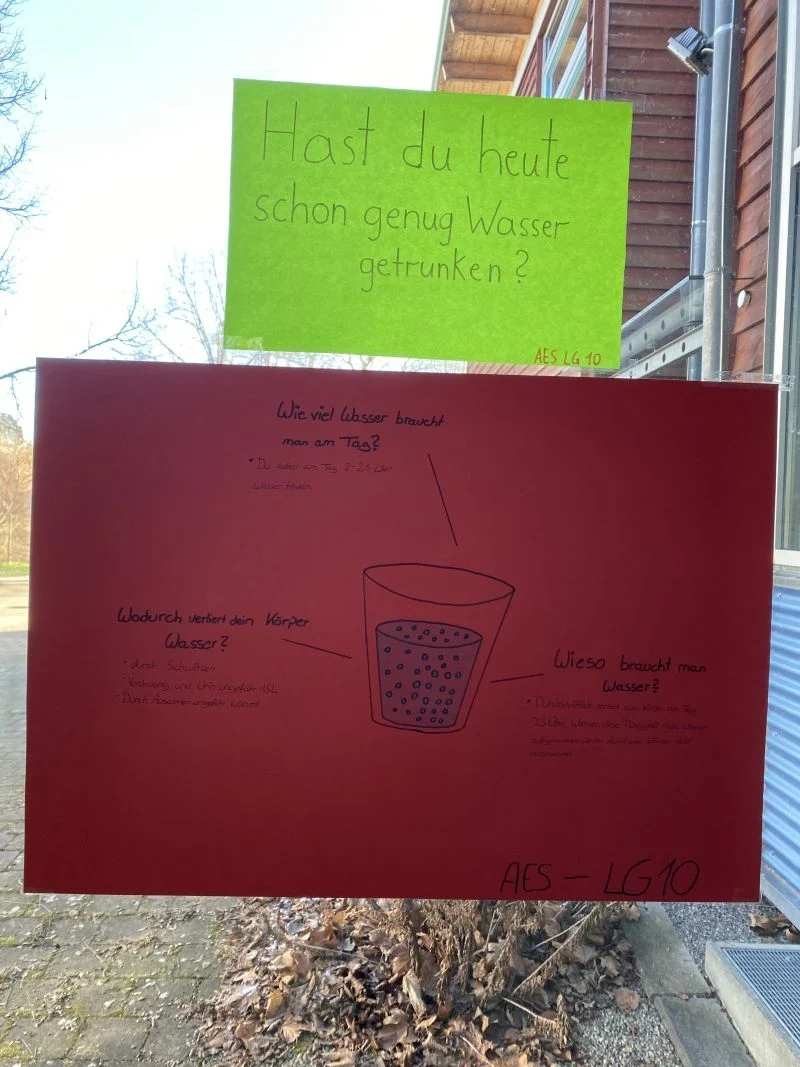 Hast du heute
schon genug Wasser
getrunken?
AES LG 10
Wie viel Wasser braucht
man am Tag?
• Du am Tag 2-2,5 Liter
Wasser trinken.
Wodurch verliert dein Körper
Wasser?
• durch Schwitzen
und Urin ungefähr 1,5L
• Durch Ausatmen ungefähr 400ml
Wieso braucht man
Wasser?
• verliert am Tag
2,5 Liter Wasser. Diese muss wieder
werden damit Körper nicht
AES - LG 10